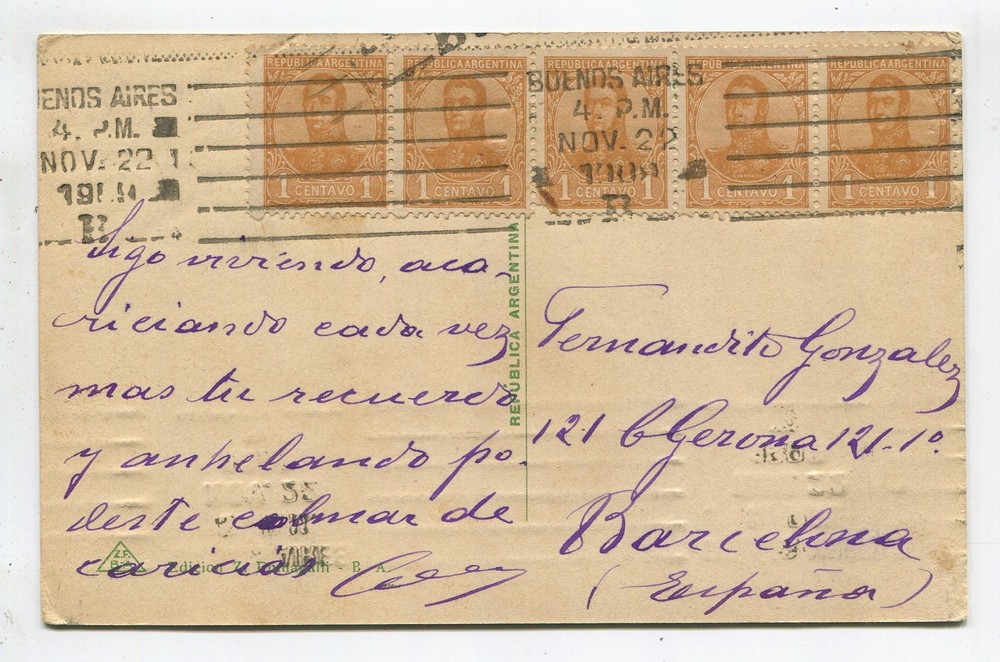 REPUBLICA ARGENTINA REPUBLICA ARGENTINA REPUBLICA ARGENTINA REPUBLICA ARGENTINA REPUBLICA ARGENTINA
1 CENTAVO 1 1 CENTAVO 1 1 CENTAVO 1 1 CENTAVO 1 1 CENTAVO 1
UENOS AIRES
4. P.M.
NOV. 22
BUENOS AIRES
4. P.M.
NOV. 22
Sigo viviendo, aca-
riciando cada vez
mas tu recuerdo
y anhelando po-
derte colmar de
caricias
REPÚBLICA ARGENTINA
Fernandito Gonzalez
121 C Gerona 121-1º
Barcelona
(España)
Z.F.
Edicion Z. - B. A.